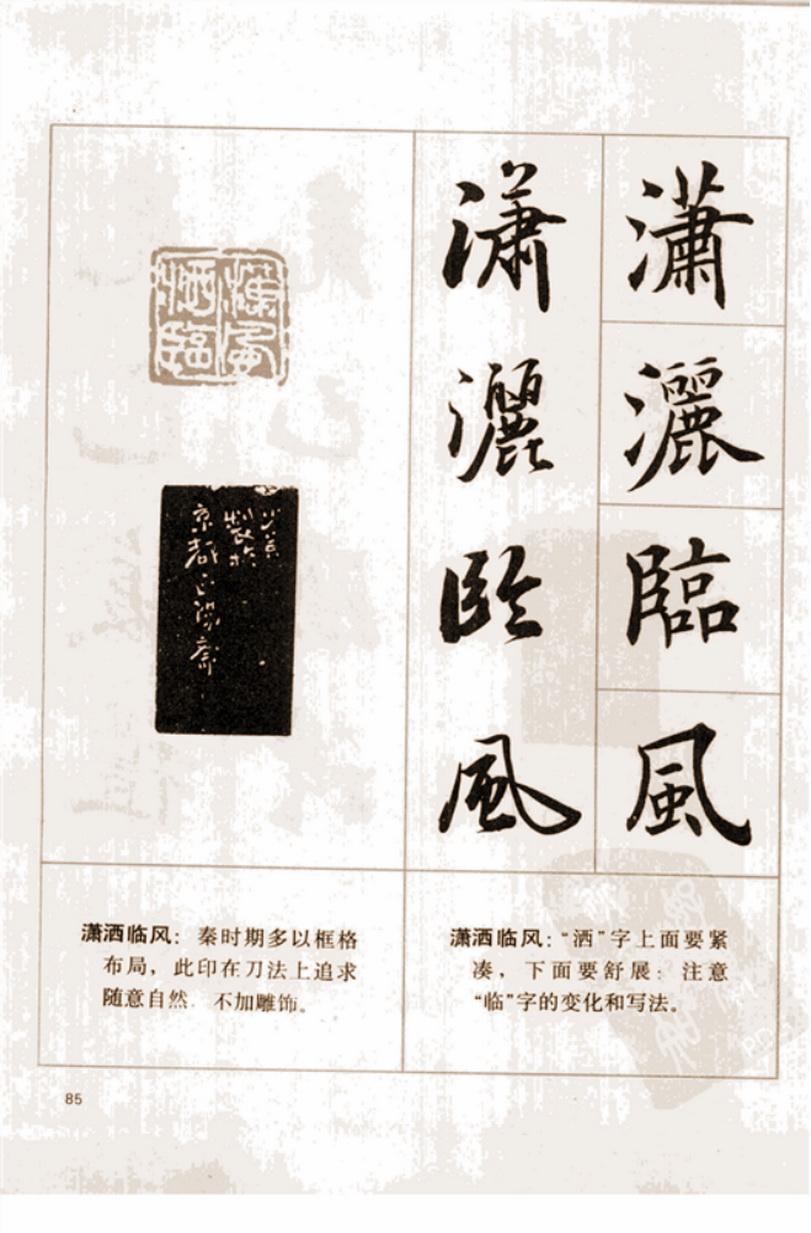 瀟灑臨風
瀟灑臨風
製於
京都正陽齋
潇洒临风：秦时期多以框格
布局，此印在刀法上追求
随意自然 不加雕饰。
潇洒临风：“洒”字上面要紧
凑，下面要舒展；注意
“临”字的变化和写法。
85